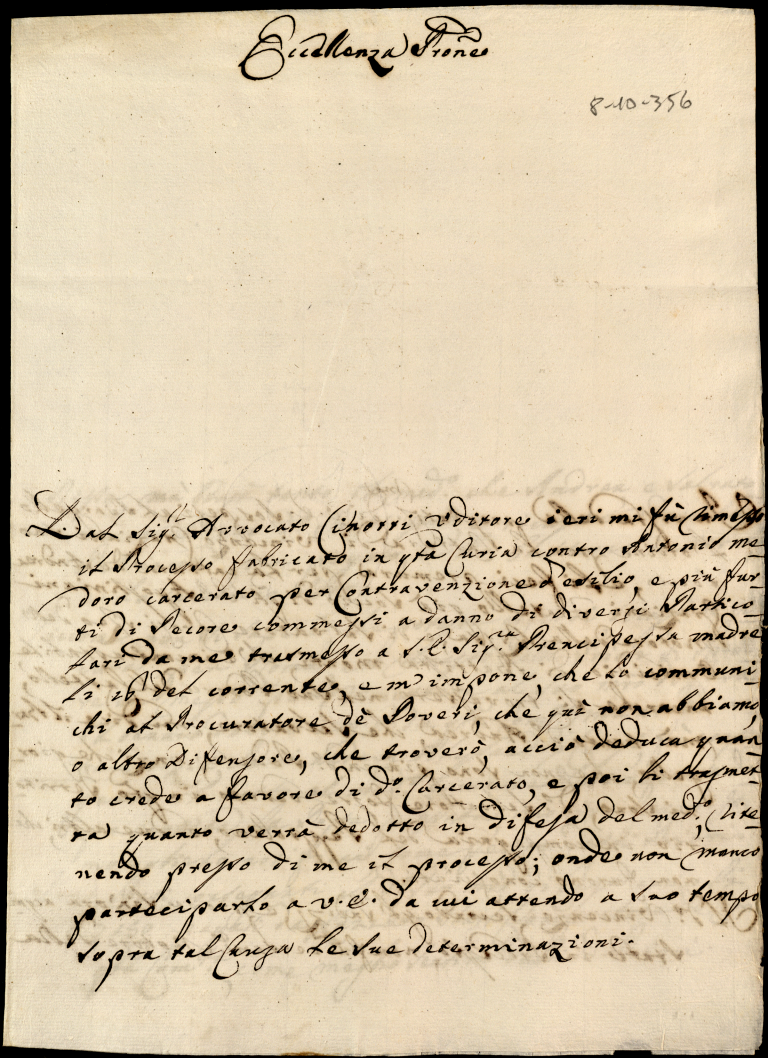 Eccellenza Prone
8-10-356
Dal Sigr. Avvocato Cinotti Uditore ieri mi fù rimesso
il Processo fabricato in qta Curia contro Antonio me-
doro carcerato per Contravenzione d'esilio, e più fur-
ti di Pecore commessi a danno di diversi Partico-
lari da me trasmesso a S.E. Sigra. Prencipessa madre
li 16 del corrente, e m'impone, che lo communi-
chi al Procuratore dè Poveri, che quì non abbiamo,
o altro Difensore, che troverò, acciò deduca quan-
to crede a favore di do. Carcerato, e poi li trasmet-
ta quanto verrà dedotto in difesa del medo., rite-
nendo presso di me il processo; onde non manco
parteciparlo a V.E. da cui attendo a suo tempo
sopra tal Causa le sue determinazioni.